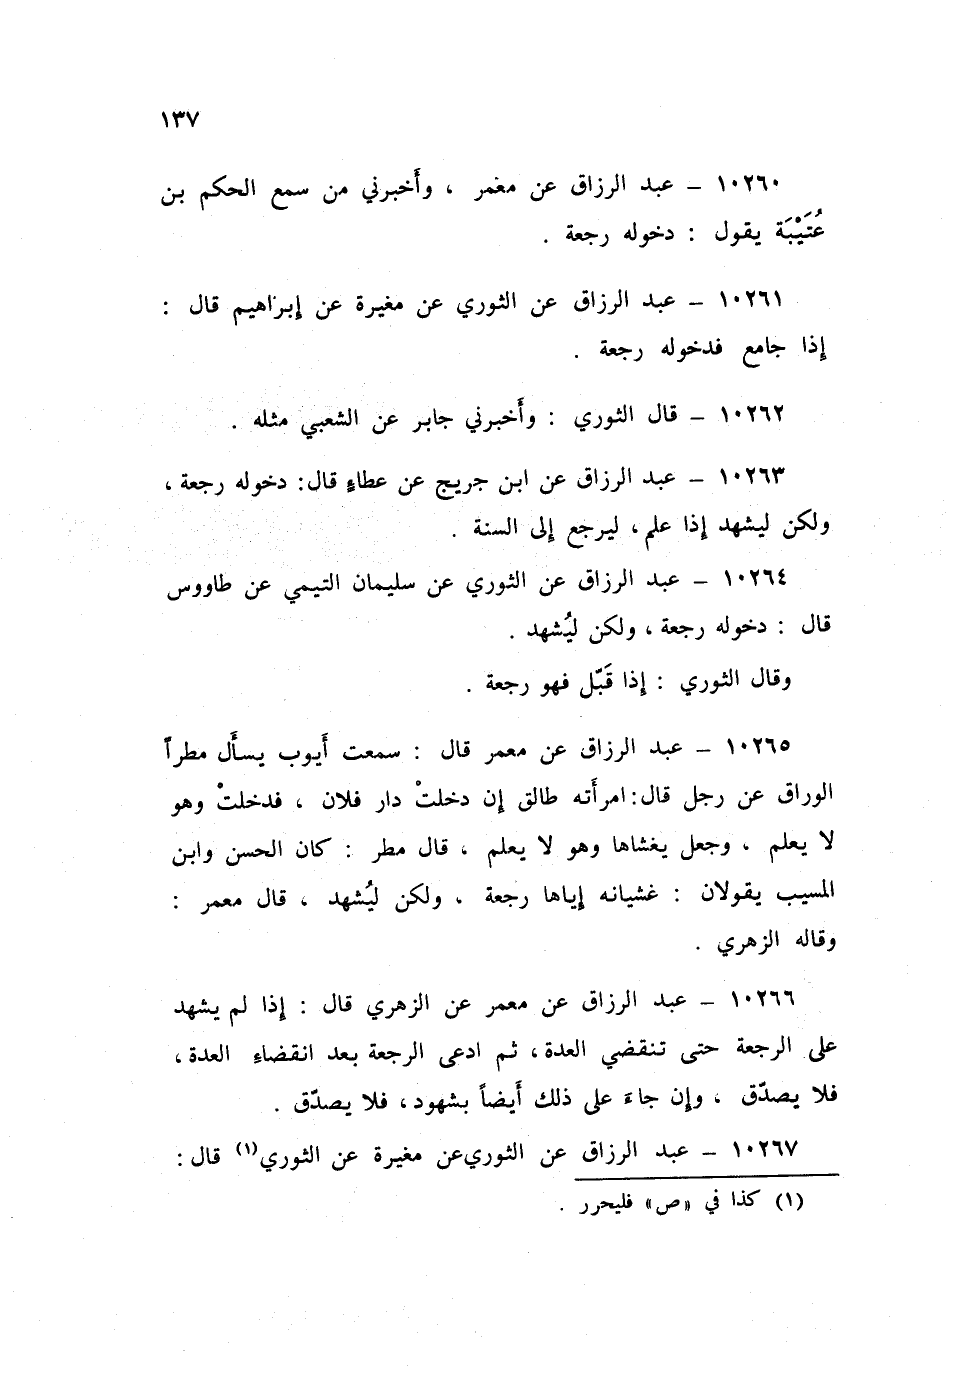 ١٣٧
١٠٢٦٠ – عبد الرزاق عن مغمر ، وأَخبرني من سمع الحكم بن
عُتَيْبَة يقول : دخوله رجعة .
١٠٢٦١ – عبد الرزاق عن الثوري عن مغيرة عن إبراهيم قال :
إذا جامع فدخوله رجعة .
١٠٢٦٢ – قال الثوري : وأَخبرني جابر عن الشعبي مثله .
١٠٢٦٣ – عبد الرزاق عن ابن جريج عن عطاءٍ قال: دخوله رجعة ،
ولكن ليشهد إذا علم ، ليرجع إلى السنة .
١٠٢٦٤ – عبد الرزاق عن الثوري عن سليمان التيمي عن طاووس
قال : دخوله رجعة ، ولكن ليُشهد .
وقال الثوري : إذا قَبّل فهو رجعة .
١٠٢٦٥ – عبد الرزاق عن معمر قال : سمعت أَيوب يسأَل مطراً
الوراق عن رجل قال: امرأَته طالق إن دخلتْ دار فلان ، فدخلتْ وهو
لا يعلم ، وجعل يغشاها وهو لا يعلم ، قال مطر : كان الحسن وابن
المسيب يقولان : غشيانه إياها رجعة ، ولكن ليُشهد ، قال معمر :
وقاله الزهري .
١٠٢٦٦ – عبد الرزاق عن معمر عن الزهري قال : إذا لم يشهد
على الرجعة حتى تنقضي العدة ، ثم ادعى الرجعة بعد انقضاءِ العدة ،
فلا يصدّق ، وإن جاءَ على ذلك أَيضاً بشهود ، فلا يصدّق .
١٠٢٦٧ – عبد الرزاق عن الثوري عن مغيرة عن الثوري(١) قال :
(١) كذا في «ص» فليحرر .